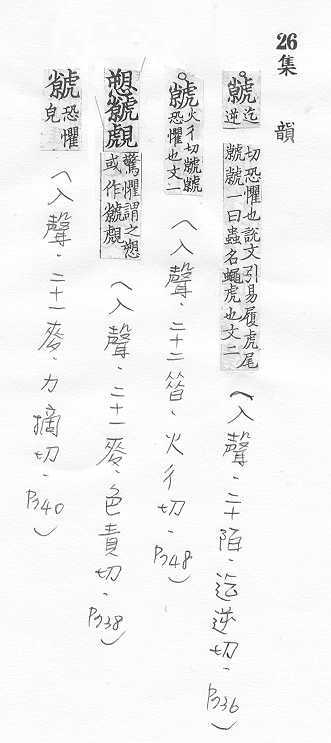 26集韻
虩迄逆切恐懼也說文引易履虎尾虩虩一曰蟲名蠅虎也文二(入聲．二十陌．迄逆切．P736)
虩火彳切虩虩恐懼也文一(入聲．二十二昔．火彳切．P748)
愬虩覤驚懼謂之愬或作虩覤(入聲．二十一麥．色責切．P738)
虩恐懼皃(入聲．二十一麥．力摘切．P740)